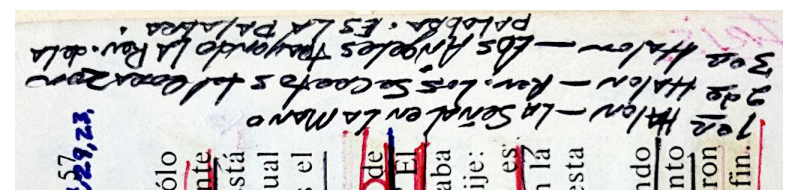 1er HAlon – LA Señal en LA MANO
2do HALON – Rev. LOS SecretoS del CorAzon
3er HALON – LOS ANgeles TrAyendo LA Rev. de lA
PALAbRA. ES LA PALAbRA.
57
29,23,
ólo
nte
stá
ual
s el
de
El
aba
ije:
es
n la
esta
ndo
nto
ron
fin.